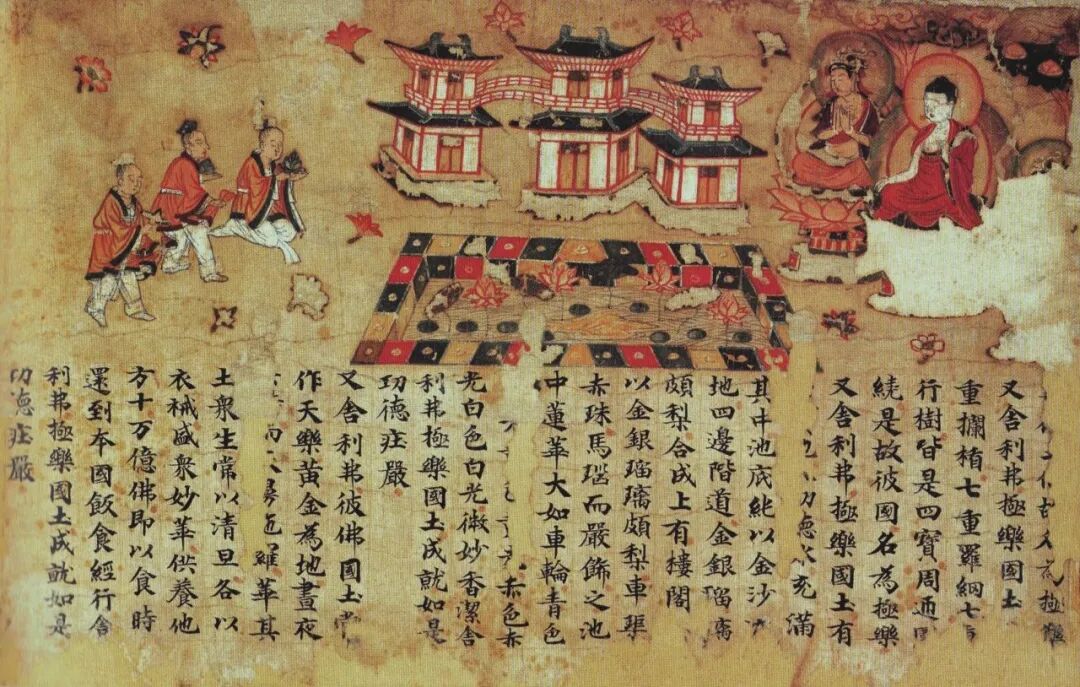 極樂
又舍利弗極樂國土
重攔楯七重羅網七
行樹皆是四寶周迊
繞是故彼國名為極樂
又舍利弗極樂國土有
功德水充滿
其中池底純以金沙
地四邊階道金銀瑠璃
頗梨合成上有樓閣
以金銀瑠璃頗梨車渠
赤珠馬瑙而嚴飾之池
中蓮華大如車輪青色
赤色赤
光白色白光微妙香潔舍
利弗極樂國土成就如是
功德莊嚴
又舍利弗彼佛國土常
作天樂黃金為地晝夜
而羅華其
土衆生常以清旦各以
衣祴盛衆妙華供養他
方十万億佛即以食時
還到本國飯食經行舍
利弗極樂國土成就如是
功德莊嚴